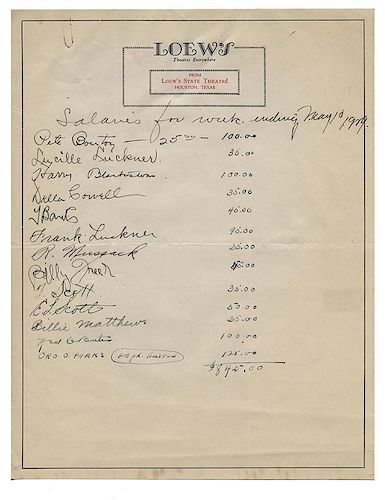 LOEW'S
Theatres Everywhere
FROM
LOEW'S STATE THEATRE
HOUSTON, TEXAS
Salaries for week ending May 10, 1929.
Pete — 25.00 — 100.00
Lucille Luckner. 35.00
Harry 100.00
Della Cowell 35.00
T Banks 40.00
Frank Luckner 95.00
R. Mussack 35.00
Billy 45.00
Scott 35.00
Ed Scott 50.00
Billie Matthews 35.00
100.00
GEO. O. PARKS HOUSTON 125.00
$845.00